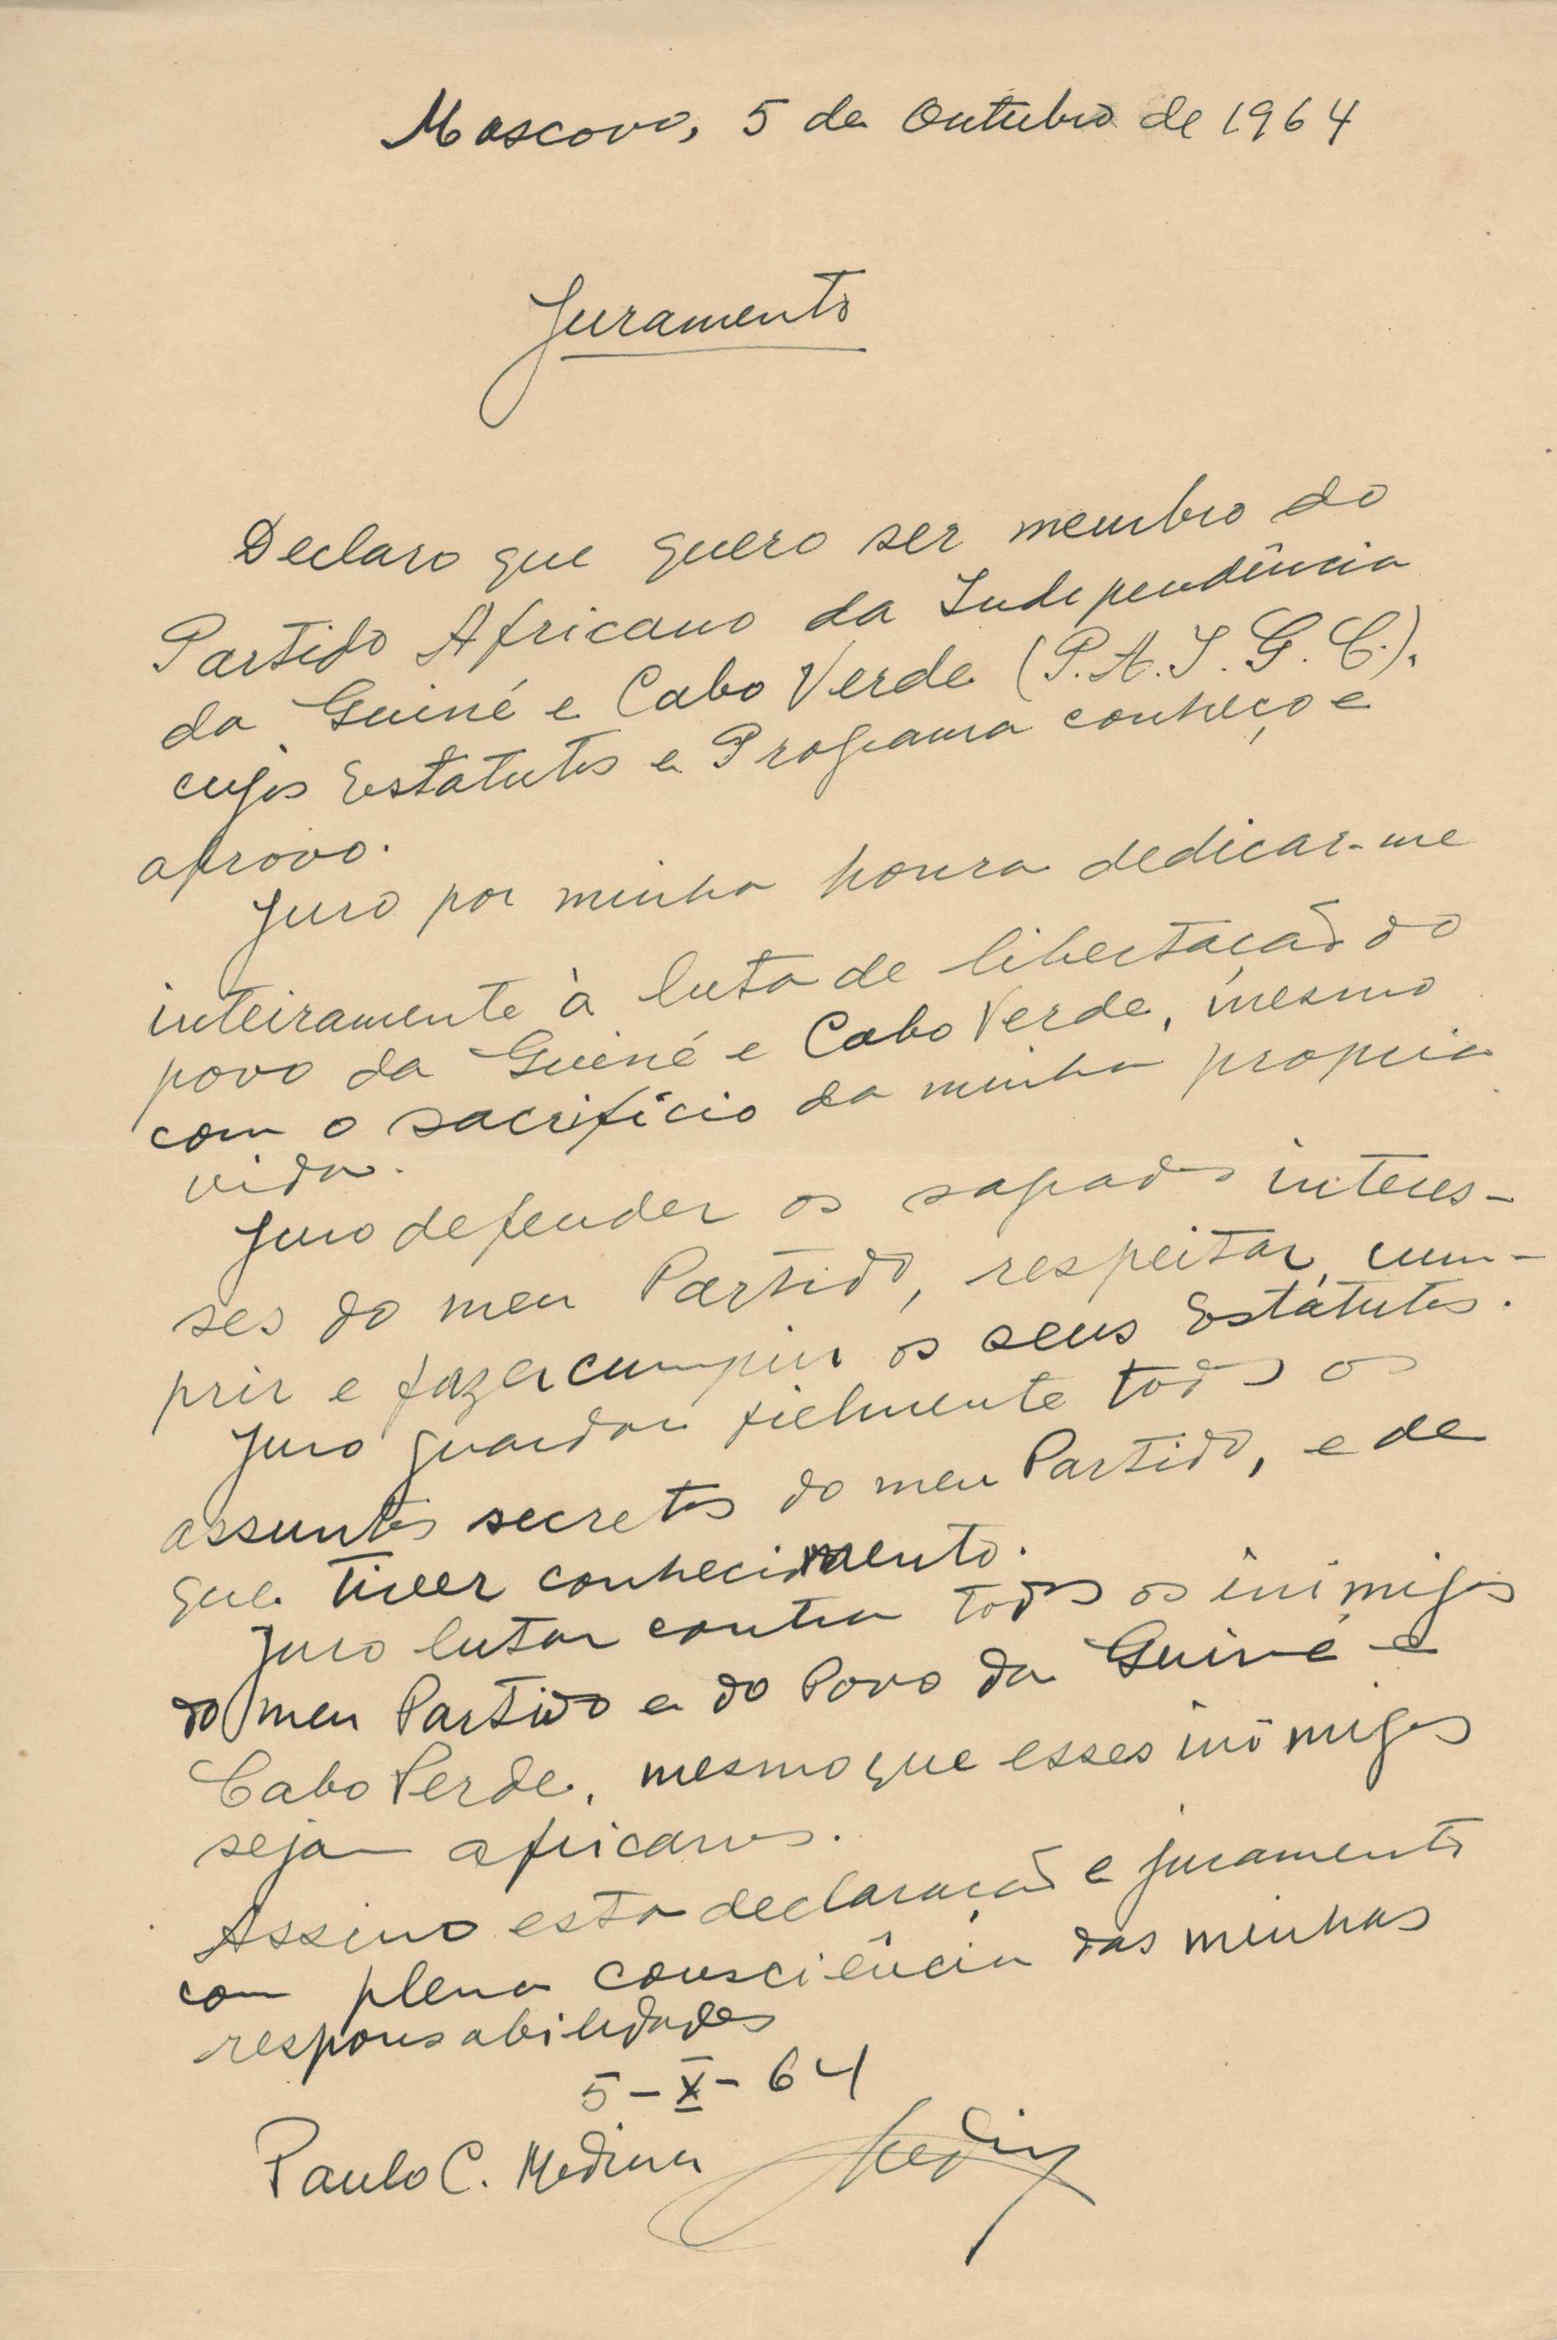 Moscovo, 5 de Outubro de 1964
Juramento
Declaro que quero ser membro do
Partido Africano da Independência
da Guiné e Cabo Verde (P.A.I.G.C.),
cujos Estatutos e Programa conheço e
aprovo.
Juro por minha honra dedicar-me
inteiramente à luta de libertação do
povo da Guiné e Cabo Verde, mesmo
com o sacrifício da minha propria
vida.
Juro defender os sagrados interes-
ses do meu Partido, respeitar, cum-
prir e fazer cumprir os seus Estatutos.
Juro guardar fielmente todos os
assuntos secretos do meu Partido, e de
que tiver conhecimento.
Juro lutar contra todos os inimigos
do meu Partido e do Povo da Guiné e
Cabo Verde, mesmo que esses inimigos
sejam africanos.
Assino esta declaração e juramento
com plena consciência das minhas
responsabilidades
5-X-64
Paulo C. Medina Medina